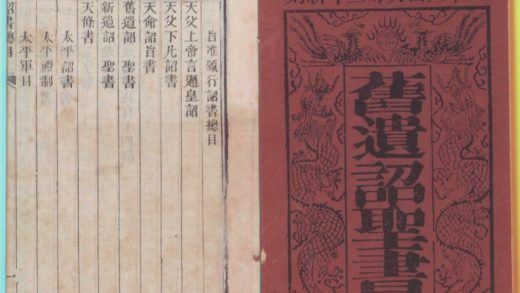 舊遺詔聖書
旨准頒行詔書總目
天父上帝言題皇詔
天父下凡詔書
天命詔旨書
舊遺詔 聖書
新遺詔 聖書
天條書
太平詔書
太平禮制
太平軍目
詔書總目